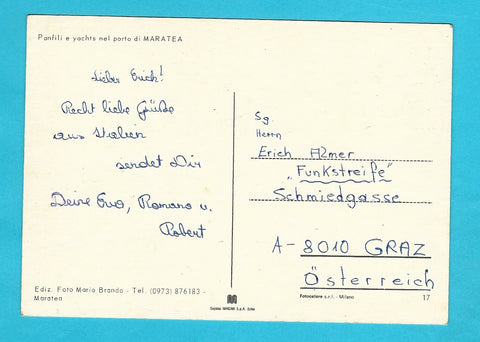 Panfili e yachts nel porto di MARATEA
Lieber Erich!
Recht liebe Grüße
aus Italien
sendet Dir
Deine Eva, Romano u.
Robert
Sg.
Herrn
Erich
"Funkstreife"
Schmiedgasse
A-8010 GRAZ
Österreich
Ediz. Foto Mario Brando - Tel. (0973) 876183 -
Maratea
Fotocelere s.r.l. - Milano
17